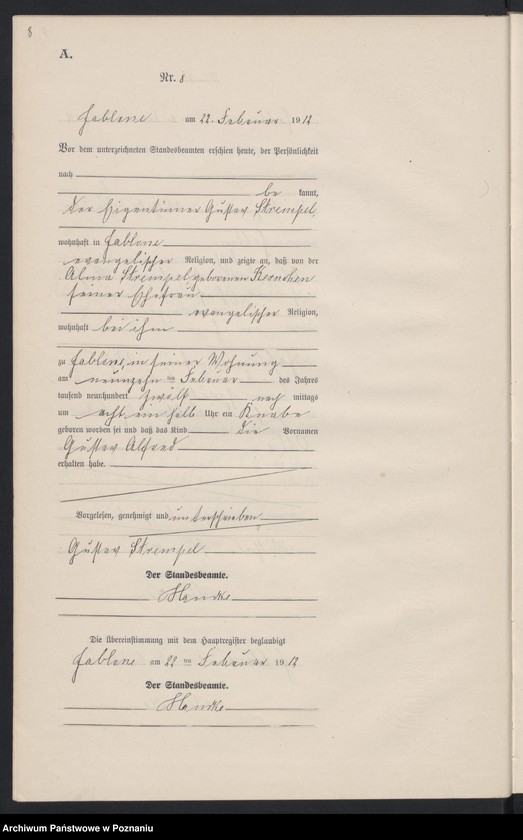 8
A.
Nr. 8
Jablone am 22. Februar 1912
Vor dem unterzeichneten Standesbeamten erschien heute, der Persönlichkeit
nach
be kannt,
der Eigentümer Gustav Strempel
wohnhaft in Jablone
evangelischer Religion, und zeigte an, daß von der
Alma Strempel geborenen
seiner Ehefrau
evangelischer Religion,
wohnhaft bei ihm
zu Jablone, in seiner Wohnung
am neunzehn ten Februar des Jahres
tausend neunhundert zwölf nach mittags
um acht ein halb Uhr ein Knabe
geboren worden sei und daß das Kind die Vornamen
Gustav Alfred
erhalten habe.
Vorgelesen, genehmigt und unterschrieben
Gustav Strempel
Der Standesbeamte.
Die Übereinstimmung mit dem Hauptregister beglaubigt
Jablone am 22 ten Februar 1912
Der Standesbeamte.
Archiwum Państwowe w Poznaniu